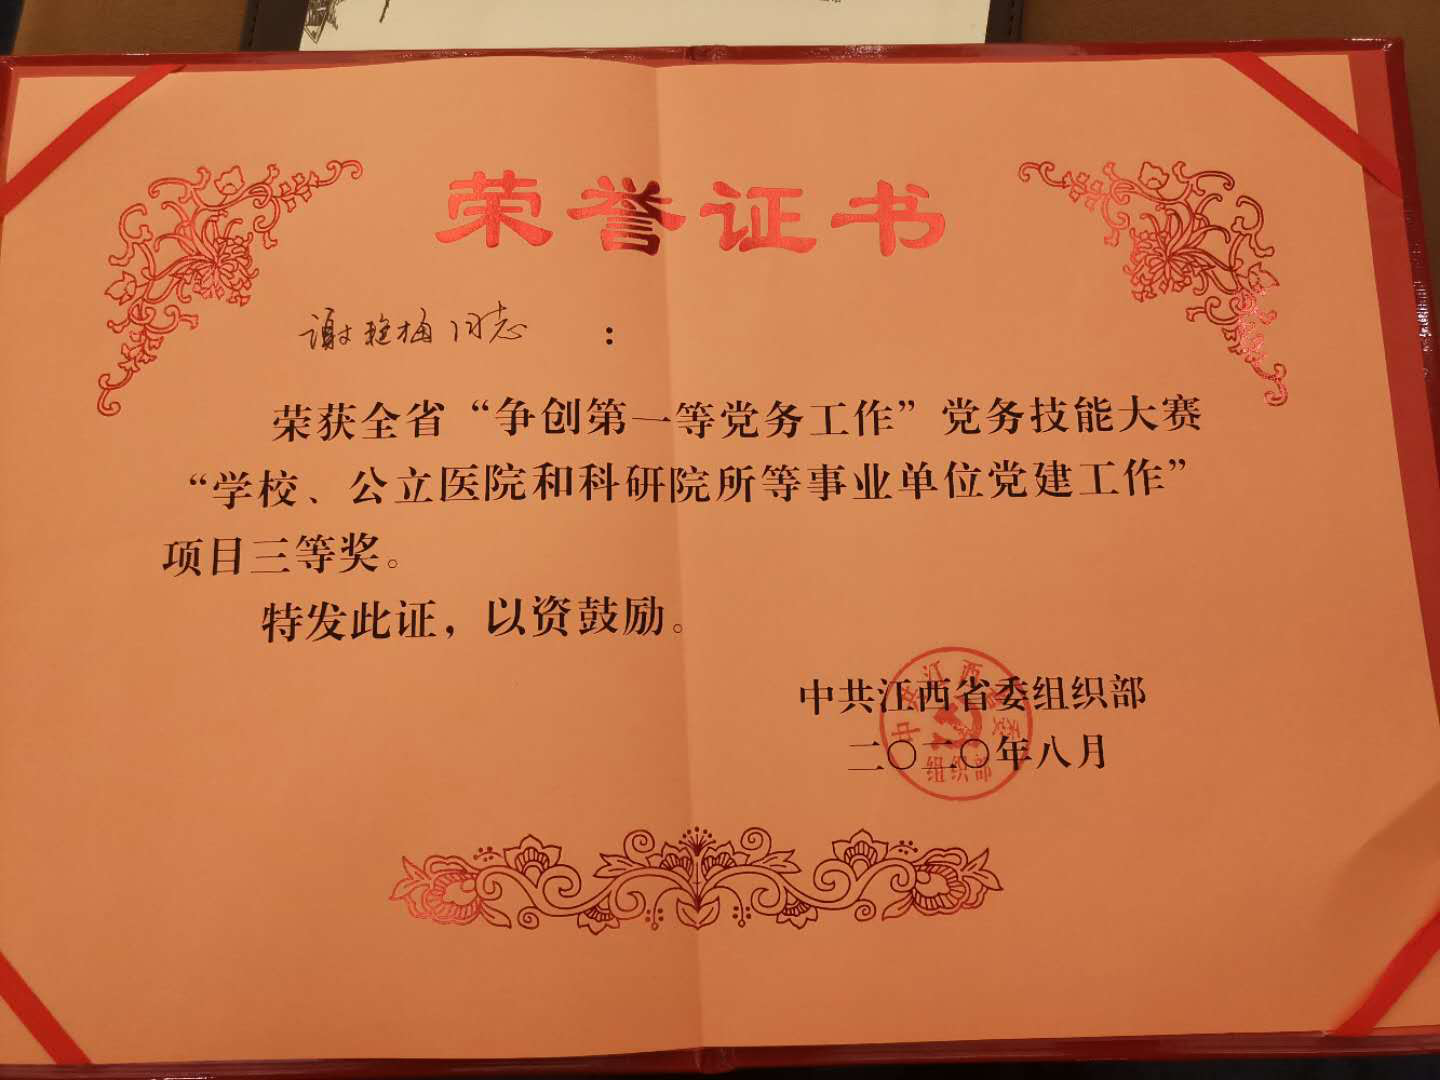 荣誉证书
谢艳梅同志：
荣获全省“争创第一等党务工作”党务技能大赛
“学校、公立医院和科研院所等事业单位党建工作”
项目三等奖。
特发此证，以资鼓励。
中共江西省委组织部
二〇二〇年八月
中共江西省委
组织部